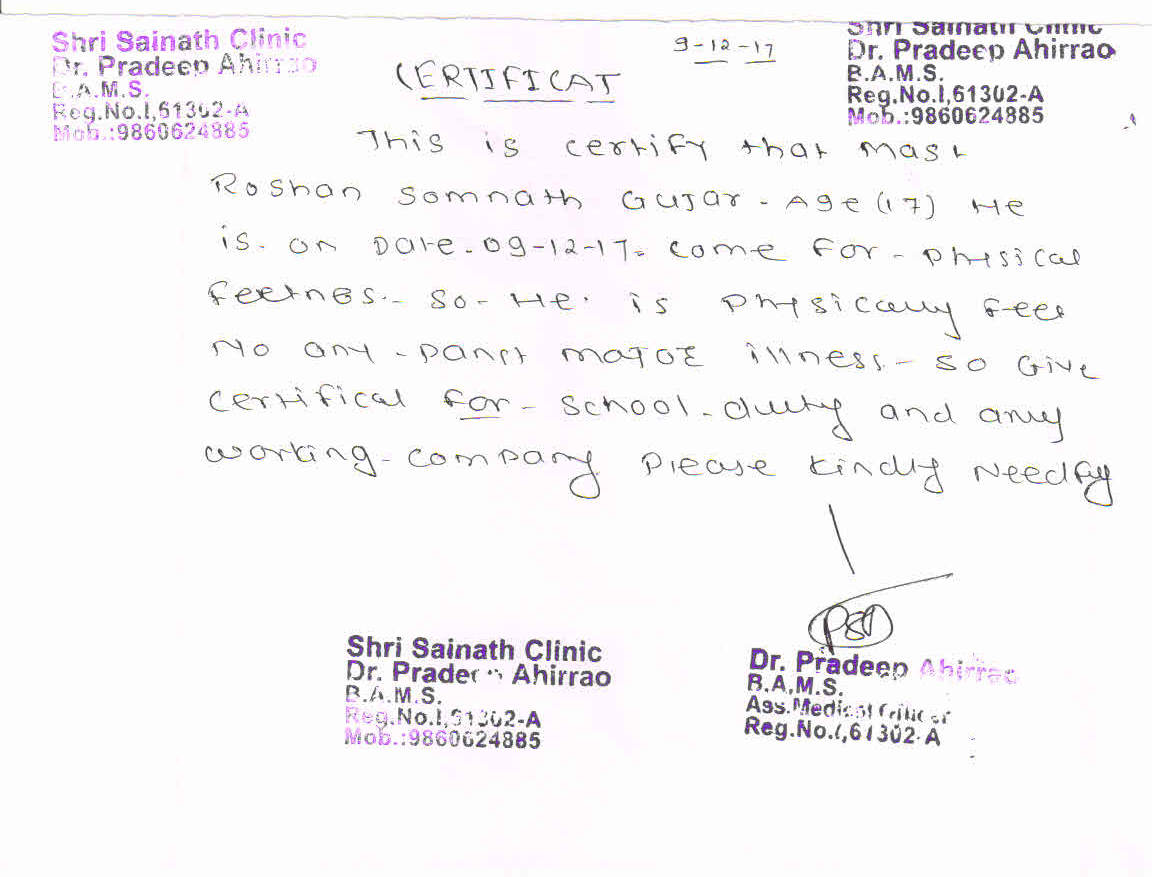 Shri Sainath Clinic
Dr. Pradeep Ahirrao
B.A.M.S.
Reg.No.I,61302-A
Mob.:9860624885
9-12-17
Shri Sainath Clinic
Dr. Pradeep Ahirrao
B.A.M.S.
Reg.No.I,61302-A
Mob.:9860624885
CERTIFICAT
This is certify that Mast
Roshan Somnath Gujar - Age (17) He
is. on Date - 09-12-17 - come for - phisical
feetness - so - He. is Phisically feet
No any - major illness - so Give
certifical for - school - duty and any
working - company please kindly Needfy
Shri Sainath Clinic
Dr. Pradeep Ahirrao
B.A.M.S.
Reg.No.I,61302-A
Mob.:9860624885
Dr. Pradeep Ahirrao
B.A.M.S.
Ass.Medical
Reg.No.I,61302-A